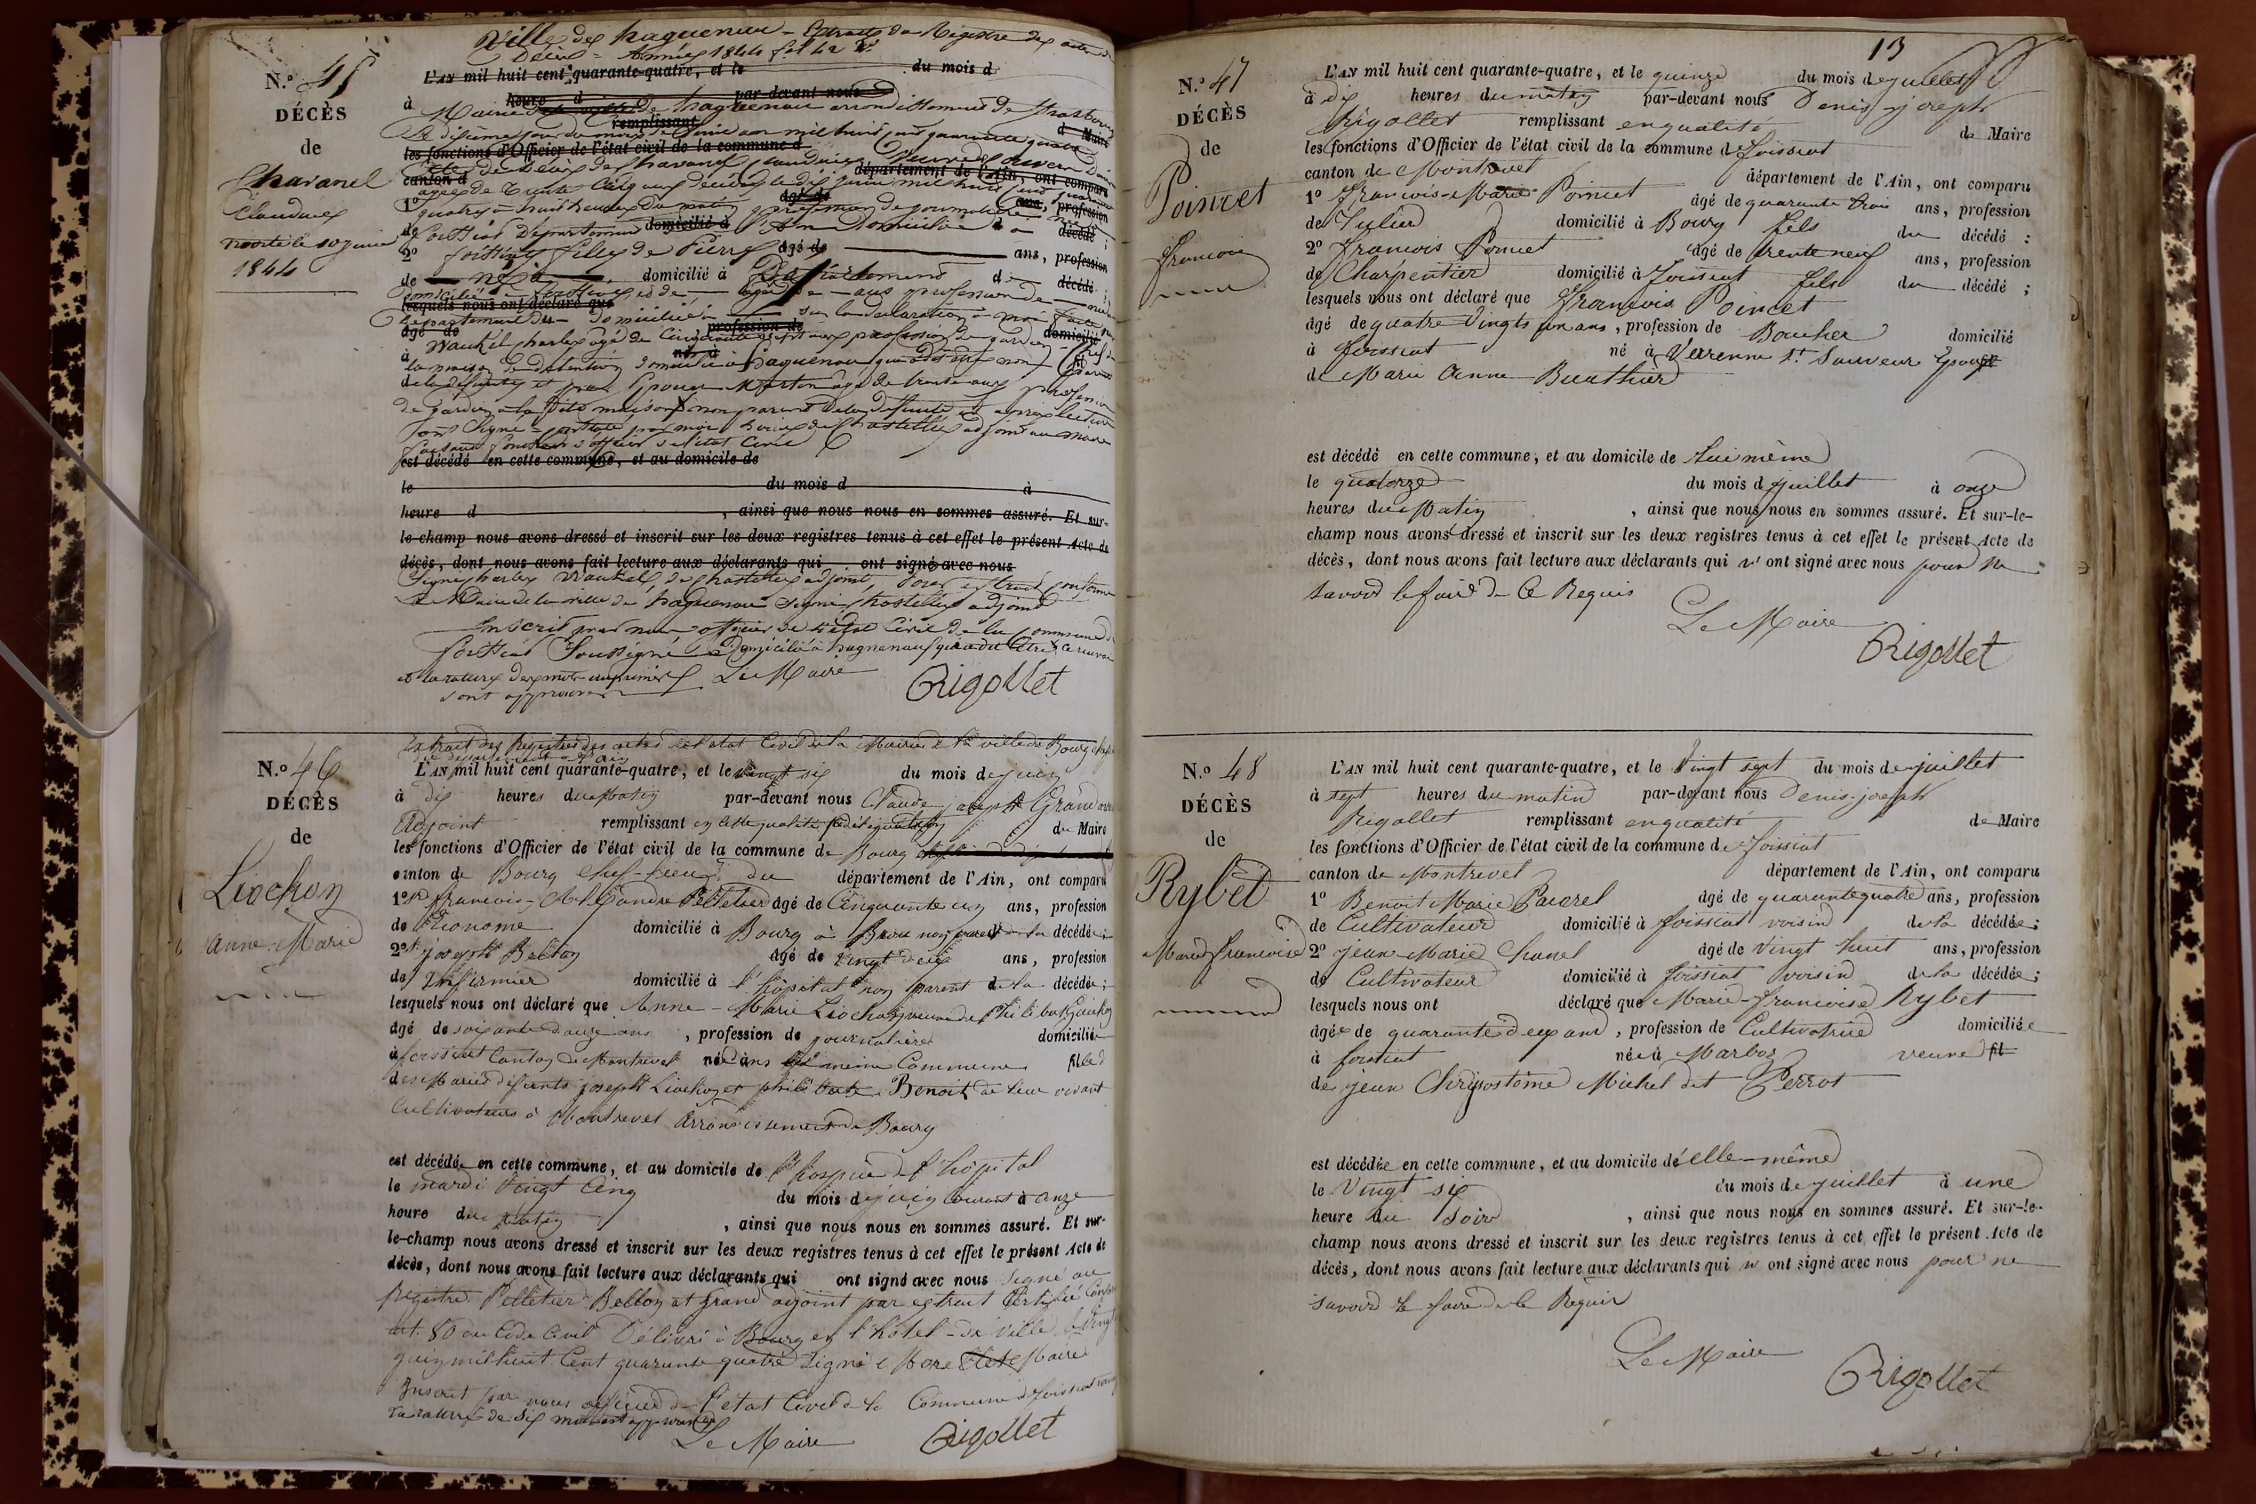 Ville de haguenau - Extrait du Registre des actes de
Décès - Année 1844 fol 42 Vo
N.o 45
DÉCÈS
de
Chavanel
Claudine
morte le 10 juin
1844
L'AN mil huit cent quarante-quatre, et le du mois d
heure d par-devant nous
à Mairie de la ville de haguenau arrondissement de Strasbourg
remplissant d Maire
Le dixieme jour du mois de juin an mil huit cent quarante quatre
les fonctions d'Officier de l'état civil de la commune d
Acte de Décès de Chavanel Claudine Veuve
canton d département de l'Ain, ont comparu
agée de trente cinq ans décédée le dix juin mil huit cent quarante
1o âgé de ans, profession
quatre à huit heures du matin profession de journalière née à
de domicilié d décédé ;
foissiat Département de l'ain Domiciliée à
2o foissiat fille de Pierre âgé de ans, profession
de né à domicilié à Département d décédé ;
domicilié à foissiat et de agée de ans profession de
lesquels nous ont déclaré que
Département du domiciliée à sur la déclaration à moi faite par
âgé de profession de domicilié
Wauhel charles agé de Cinquante sept ans profession de gardien chef de
à né à fil
la maison de détention domicilié à haguenau qui a dit être non parent
de la défunte et par agé de trente ans profession
de gardien à la dite maison non parent de la deffunte et après lecture
ont signé Constaté par moi de Chastellux adjoint au maire
faisant fonctions d'officier de l'état Civil
est décédé en cette commune, et au domicile de
le du mois d à
heure d , ainsi que nous nous en sommes assuré. Et sur-
le-champ nous avons dressé et inscrit sur les deux registres tenus à cet effet le présent Acte de
décès, dont nous avons fait lecture aux déclarants qui ont signé avec nous
Signé charles Wauhel, de Chastellux adjoint, Pour extrait Conforme
Le Maire de la ville de haguenau signé Chastellux adjoint
Inscrit par nous officier de l'état Civil de la Commune de
foissiat Soussigné Domicilié à haguenau qui a dit être
et la rature des mots imprimés Le Maire
sont approuvés
Rigollet
Extrait des Registres des actes de l'état Civil de la Mairie de la ville de Bourg chef
lieu département de l'Ain
N.o 46
DÉCÈS
de
Liochon
anne-Marie
L'AN mil huit cent quarante-quatre, et le vingt six du mois de juin
à dix heures du matin par-devant nous Claude joseph Grand
Adjoint remplissant en cette qualité par délégation du Maire
les fonctions d'Officier de l'état civil de la commune de Bourg
canton de Bourg Chef-Lieu du département de l'Ain, ont comparu
1o françois-Alexandre Pelletier âgé de Cinquante un ans, profession
de Econome domicilié à Bourg à Brou non parent de la décédée ;
2o joseph Belloy âgé de vingt deux ans, profession
de Infirmier domicilié à l'hôpital non parent de la décédée ;
lesquels nous ont déclaré que Anne-Marie Liochon veuve de Philibert
âgé de soixante douze ans , profession de journalière domiciliée
à foissiat Canton de Montrevel née dans la même Commune fille d
des Mariés défunts joseph Liochon et philiberte Benoit de leur vivant
Cultivateurs à Montrevel Arrondissement de Bourg
est décédée en cette commune, et au domicile de l'hospice de l'hôpital
le mardi vingt Cinq du mois de juin courant à onze
heure du matin , ainsi que nous nous en sommes assuré. Et sur-
le-champ nous avons dressé et inscrit sur les deux registres tenus à cet effet le présent Acte de
décès, dont nous avons fait lecture aux déclarants qui ont signé avec nous Signé au
registre Pelletier Belloy et Grand adjoint par extrait Certifié Conforme
art. 80 du Code Civil Délivré à Bourg en l'hôtel-de ville le vingt
juin mil huit Cent quarante quatre Signé Maire
Inscrit par nous officier de l'état Civil de la Commune de foissiat
La rature de six mots est approuvée
Le Maire
Rigollet
13
N.o 47
DÉCÈS
de
Poincet
françois
L'AN mil huit cent quarante-quatre, et le quinze du mois de juillet
à dix heures du matin par-devant nous Denis joseph
Rigollet remplissant en qualité de Maire
les fonctions d'Officier de l'état civil de la commune de foissiat
canton de Montrevel département de l'Ain, ont comparu
1o françois-Marie Poincet âgé de quarante trois ans, profession
de Tulier domicilié à Bourg fils du décédé :
2o françois Poincet âgé de trente neuf ans, profession
de Charpentier domicilié à foissiat fils du décédé ;
lesquels nous ont déclaré que françois Poincet
âgé de quatre Vingts un ans , profession de Boucher domicilié
à foissiat né à Varenne St Sauveur Epoux fil
de Marie Anne Buathier
est décédé en cette commune, et au domicile de Lui même
le quatorze du mois de juillet à onze
heures du Matin , ainsi que nous nous en sommes assuré. Et sur-le-
champ nous avons dressé et inscrit sur les deux registres tenus à cet effet le présent Acte de
décès, dont nous avons fait lecture aux déclarants qui n'ont signé avec nous pour Ne
Savoir le faire de Ce Requis
Le Maire
Rigollet
N.o 48
DÉCÈS
de
Rybet
Marie françoise
L'AN mil huit cent quarante-quatre, et le Vingt sept du mois de juillet
à sept heures du matin par-devant nous Denis-joseph
Rigollet remplissant en qualité de Maire
les fonctions d'Officier de l'état civil de la commune de foissiat
canton de Montrevel département de l'Ain, ont comparu
1o Benoit Marie Pavarel âgé de quarante quatre ans, profession
de Cultivateur domicilié à foissiat voisin de la décédée ;
2o jean Marie Chanel âgé de Vingt huit ans, profession
de Cultivateur domicilié à foissiat voisin de la décédée ;
lesquels nous ont déclaré que Marie-françoise Rybet
âgée de quarante deux ans , profession de Cultivatrice domiciliée
à foissiat née à Marboz veuve fil
de jean Chrysostôme Michel dit Perrot
est décédée en cette commune, et au domicile d'elle-même
le Vingt six du mois de juillet à une
heure du Soir , ainsi que nous nous en sommes assuré. Et sur-le-
champ nous avons dressé et inscrit sur les deux registres tenus à cet effet le présent Acte de
décès, dont nous avons fait lecture aux déclarants qui n'ont signé avec nous pour ne
savoir le faire de le Requis
Le Maire
Rigollet